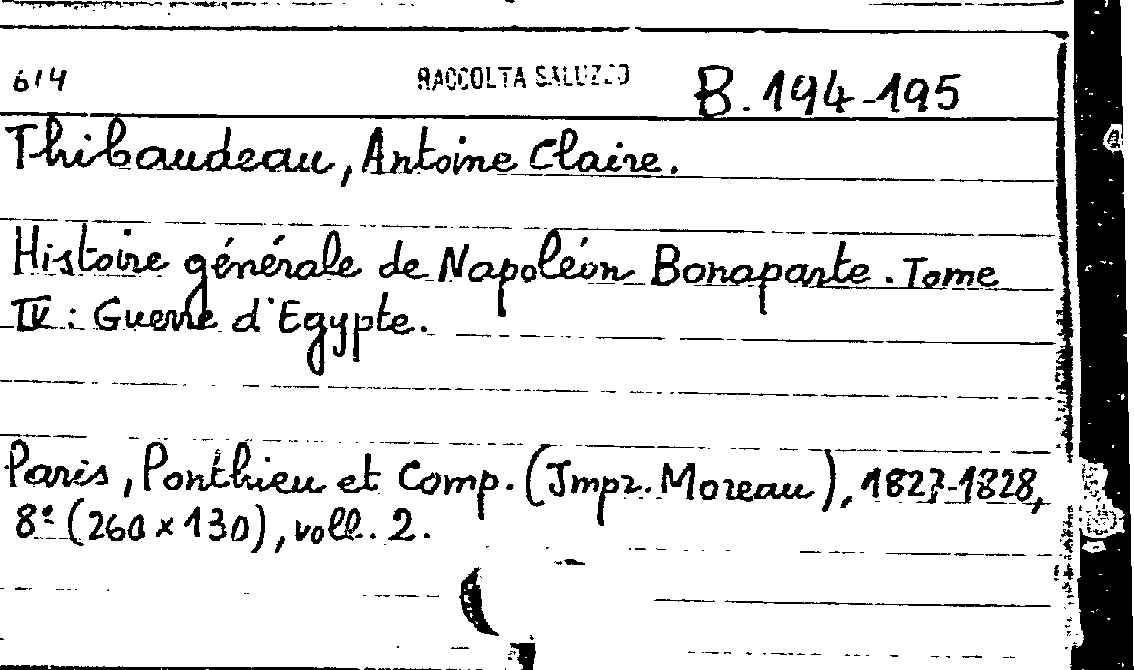 614 RACCOLTA SALUZZO B. 194-195
Thibaudeau, Antoine Claire.
Histoire générale de Napoléon Bonaparte. Tome
IV: Guerre d'Egypte.
Paris, Ponthieu et Comp. (Impr. Moreau), 1827-1828,
8° (260 x 130), voll. 2.